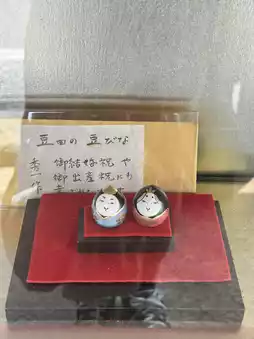 豆田の豆びな
御結婚祝や
御出産祝にも
秀一作